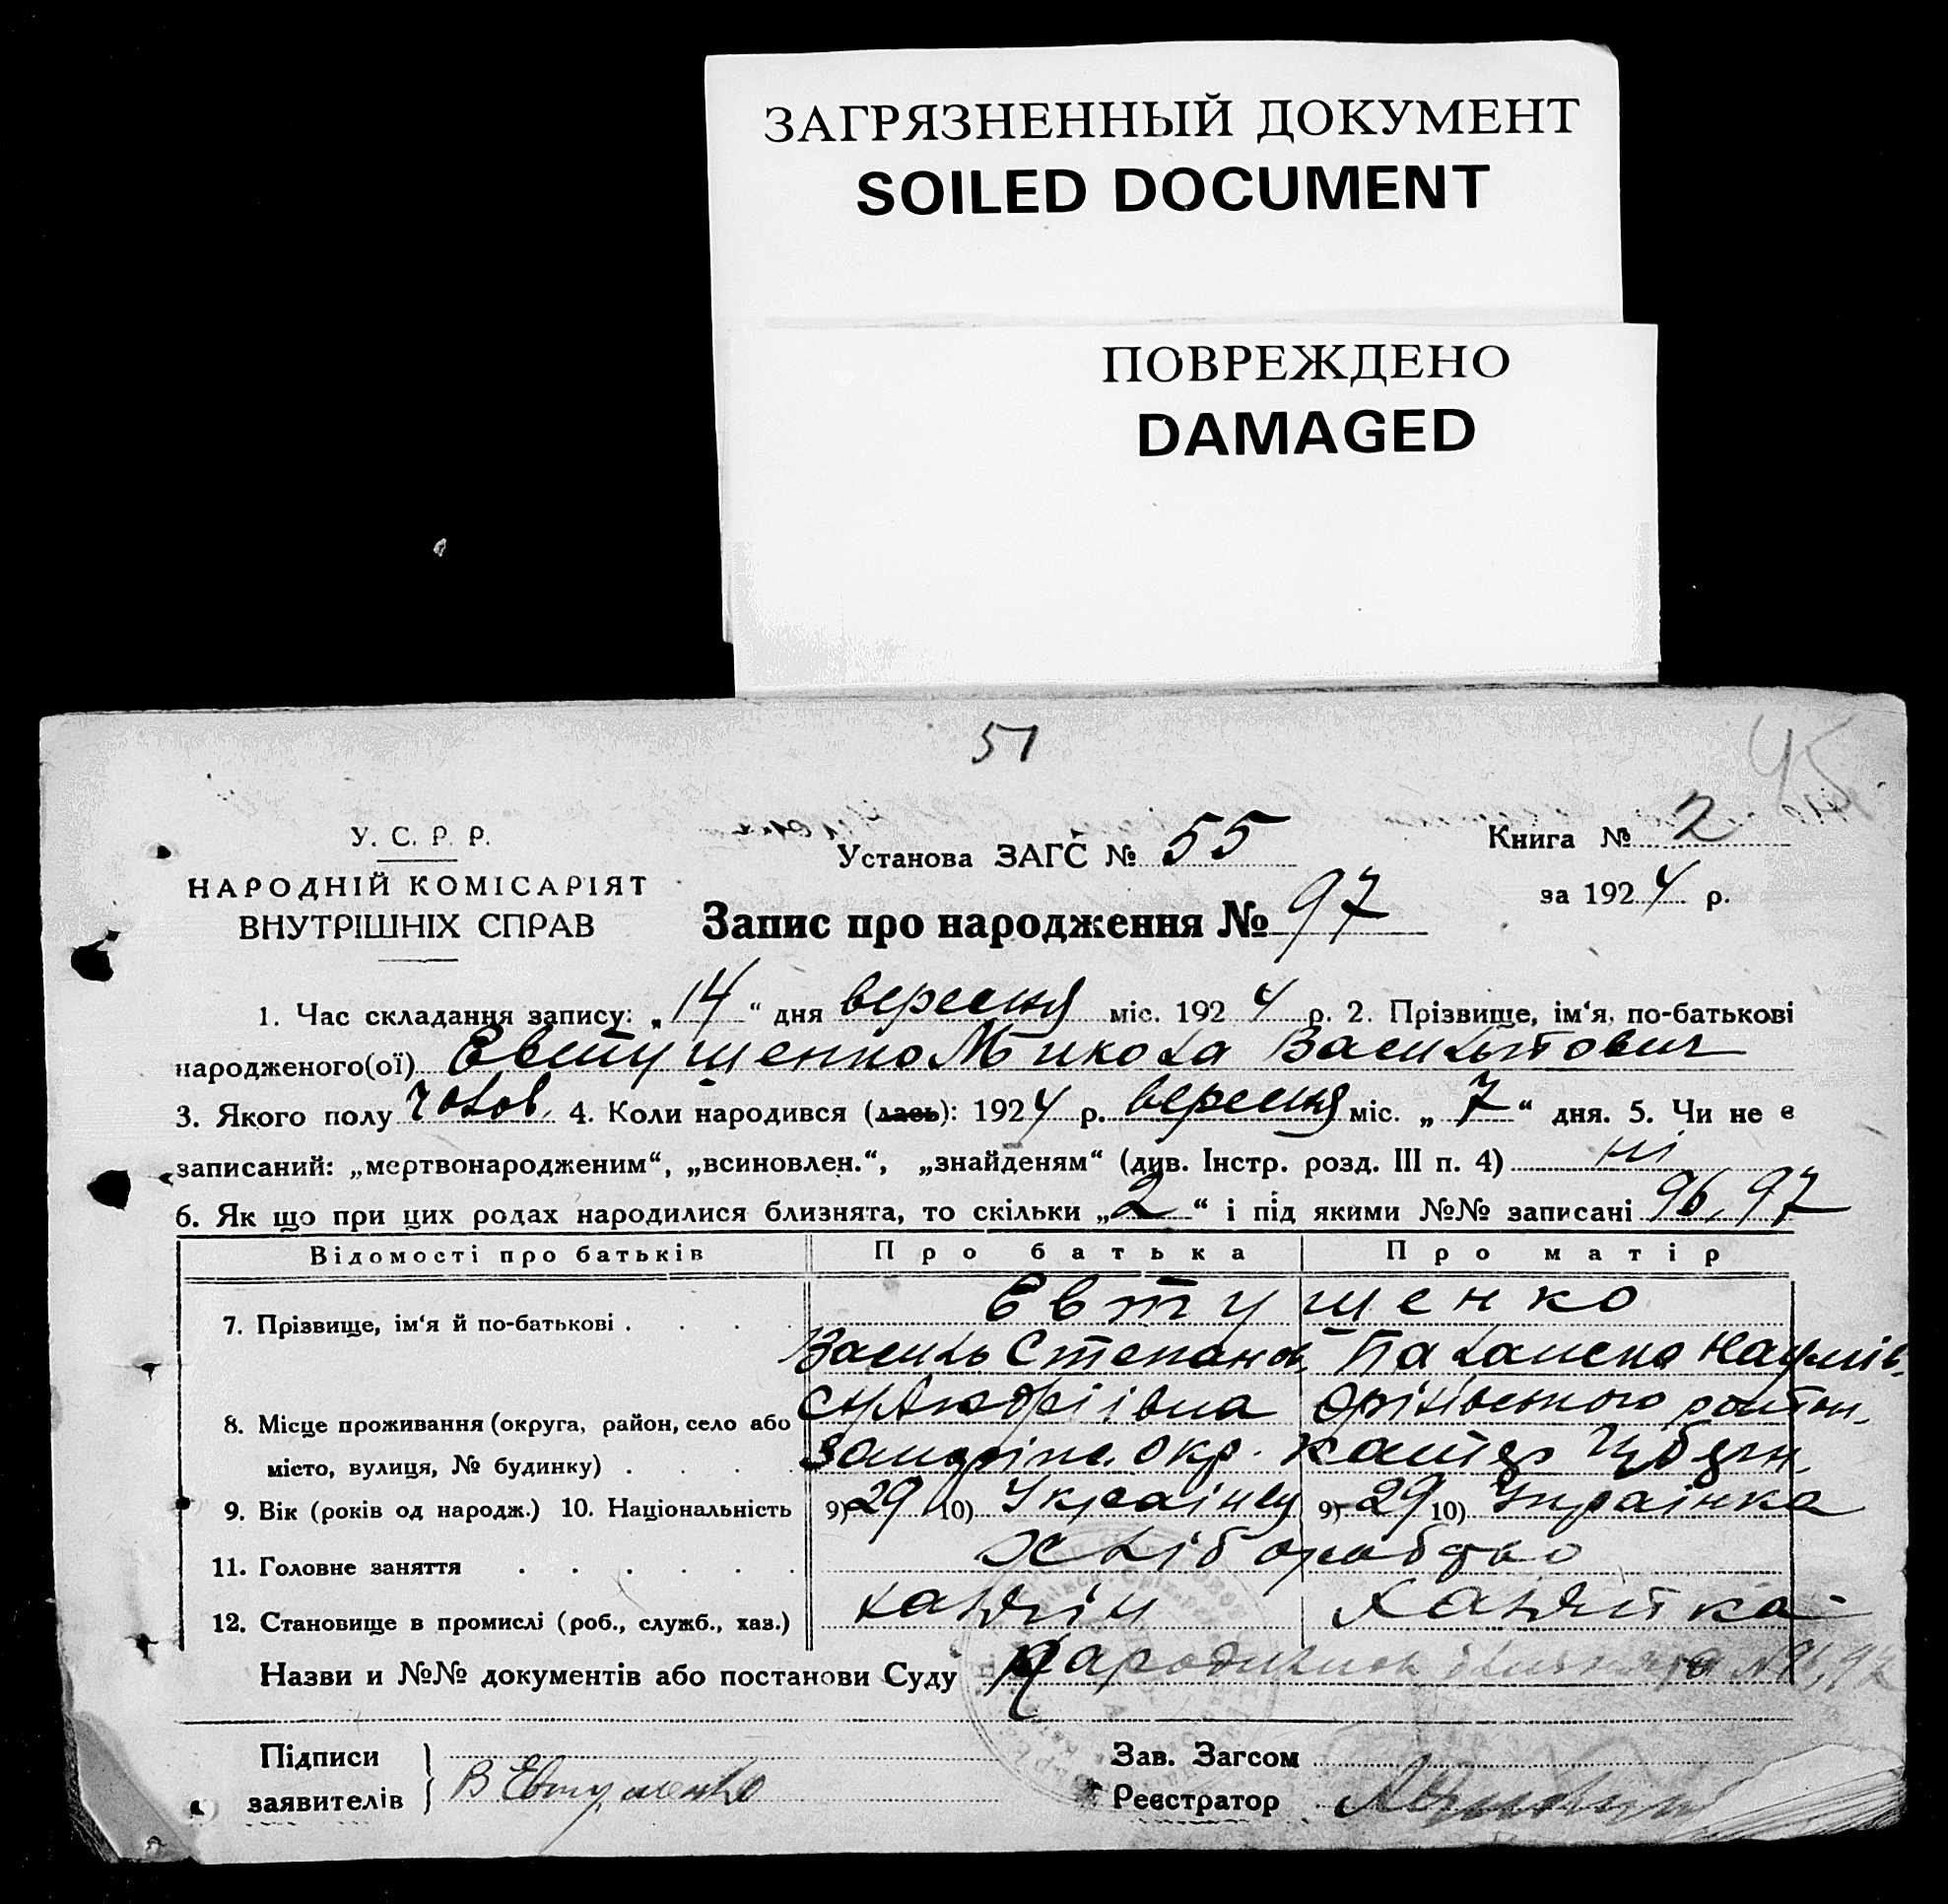 ЗАГРЯЗНЕННЫЙ ДОКУМЕНТ
SOILED DOCUMENT
ПОВРЕЖДЕНО
DAMAGED
51
45
У. С. Р. Р.
НАРОДНІЙ КОМІСАРІЯТ
ВНУТРІШНІХ СПРАВ
Установа ЗАГС № 55
Книга № 2
за 1924 р.
Запис про народження № 97
1. Час складання запису: „14“ дня вересня міс. 1924 р. 2. Прізвище, ім‘я, по-батькові
народженого(ої) Евтушенко Микола Васильтович
3. Якого полу чолов. 4. Коли народився (лась): 1924 р. вересня міс. „7“ дня. 5. Чи не є
записаний: „мертвонародженим“, „всиновлен.“, „знайденям“ (див. Інстр. розд. III п. 4) ні
6. Як що при цих родах народилися близнята, то скільки „2“ і під якими №№ записані 96, 97
Відомості про батьків Про батька Про матір
7. Прізвище, ім‘я й по-батькові . . . . Евтушенко
Василь Степанов Палажка
8. Місце проживання (округа, район, село або с. Андріівка
місто, вулиця, № будинку) . . . . окр.
9. Вік (років од народж.) 10. Національність 9) 29 10) Українец 9) 29 10) Українка
11. Головне заняття . . . . . . хліборобство
12. Становище в промислі (роб., служб., хаз.) хазяін хазяйка
Назви и №№ документів або постанови Суду
Підписи
заявителів } В Евтушенко
Зав. Загсом
Реєстратор